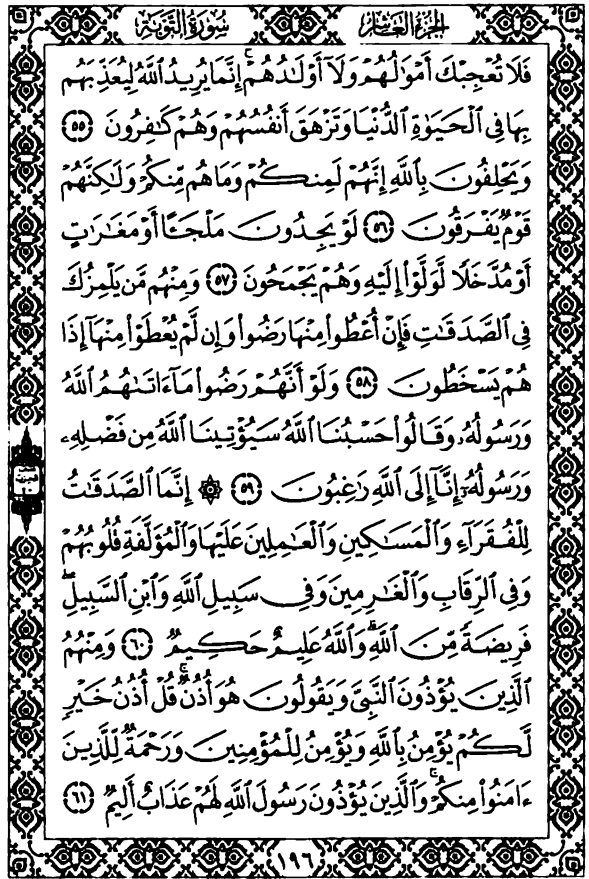 سُورَةُ التَّوْبَةِ الجُزْءُ العَاشِرُ
فَلَا تُعْجِبْكَ أَمْوَٰلُهُمْ وَلَآ أَوْلَٰدُهُمْ ۚ إِنَّمَا يُرِيدُ ٱللَّهُ لِيُعَذِّبَهُم
بِهَا فِى ٱلْحَيَوٰةِ ٱلدُّنْيَا وَتَزْهَقَ أَنفُسُهُمْ وَهُمْ كَٰفِرُونَ ٥٥
وَيَحْلِفُونَ بِٱللَّهِ إِنَّهُمْ لَمِنكُمْ وَمَا هُم مِّنكُمْ وَلَٰكِنَّهُمْ
قَوْمٌ يَفْرَقُونَ ٥٦ لَوْ يَجِدُونَ مَلْجَـًٔا أَوْ مَغَٰرَٰتٍ
أَوْ مُدَّخَلًا لَّوَلَّوْا۟ إِلَيْهِ وَهُمْ يَجْمَحُونَ ٥٧ وَمِنْهُم مَّن يَلْمِزُكَ
فِى ٱلصَّدَقَٰتِ فَإِنْ أُعْطُوا۟ مِنْهَا رَضُوا۟ وَإِن لَّمْ يُعْطَوْا۟ مِنْهَآ إِذَا
هُمْ يَسْخَطُونَ ٥٨ وَلَوْ أَنَّهُمْ رَضُوا۟ مَآ ءَاتَىٰهُمُ ٱللَّهُ
وَرَسُولُهُۥ وَقَالُوا۟ حَسْبُنَا ٱللَّهُ سَيُؤْتِينَا ٱللَّهُ مِن فَضْلِهِۦ
وَرَسُولُهُۥٓ إِنَّآ إِلَى ٱللَّهِ رَٰغِبُونَ ٥٩ ۞ إِنَّمَا ٱلصَّدَقَٰتُ
لِلْفُقَرَآءِ وَٱلْمَسَٰكِينِ وَٱلْعَٰمِلِينَ عَلَيْهَا وَٱلْمُؤَلَّفَةِ قُلُوبُهُمْ
وَفِى ٱلرِّقَابِ وَٱلْغَٰرِمِينَ وَفِى سَبِيلِ ٱللَّهِ وَٱبْنِ ٱلسَّبِيلِ ۖ
فَرِيضَةً مِّنَ ٱللَّهِ ۗ وَٱللَّهُ عَلِيمٌ حَكِيمٌ ٦٠ وَمِنْهُمُ
ٱلَّذِينَ يُؤْذُونَ ٱلنَّبِىَّ وَيَقُولُونَ هُوَ أُذُنٌ ۚ قُلْ أُذُنُ خَيْرٍ
لَّكُمْ يُؤْمِنُ بِٱللَّهِ وَيُؤْمِنُ لِلْمُؤْمِنِينَ وَرَحْمَةٌ لِّلَّذِينَ
ءَامَنُوا۟ مِنكُمْ ۚ وَٱلَّذِينَ يُؤْذُونَ رَسُولَ ٱللَّهِ لَهُمْ عَذَابٌ أَلِيمٌ ٦١
١٩٦